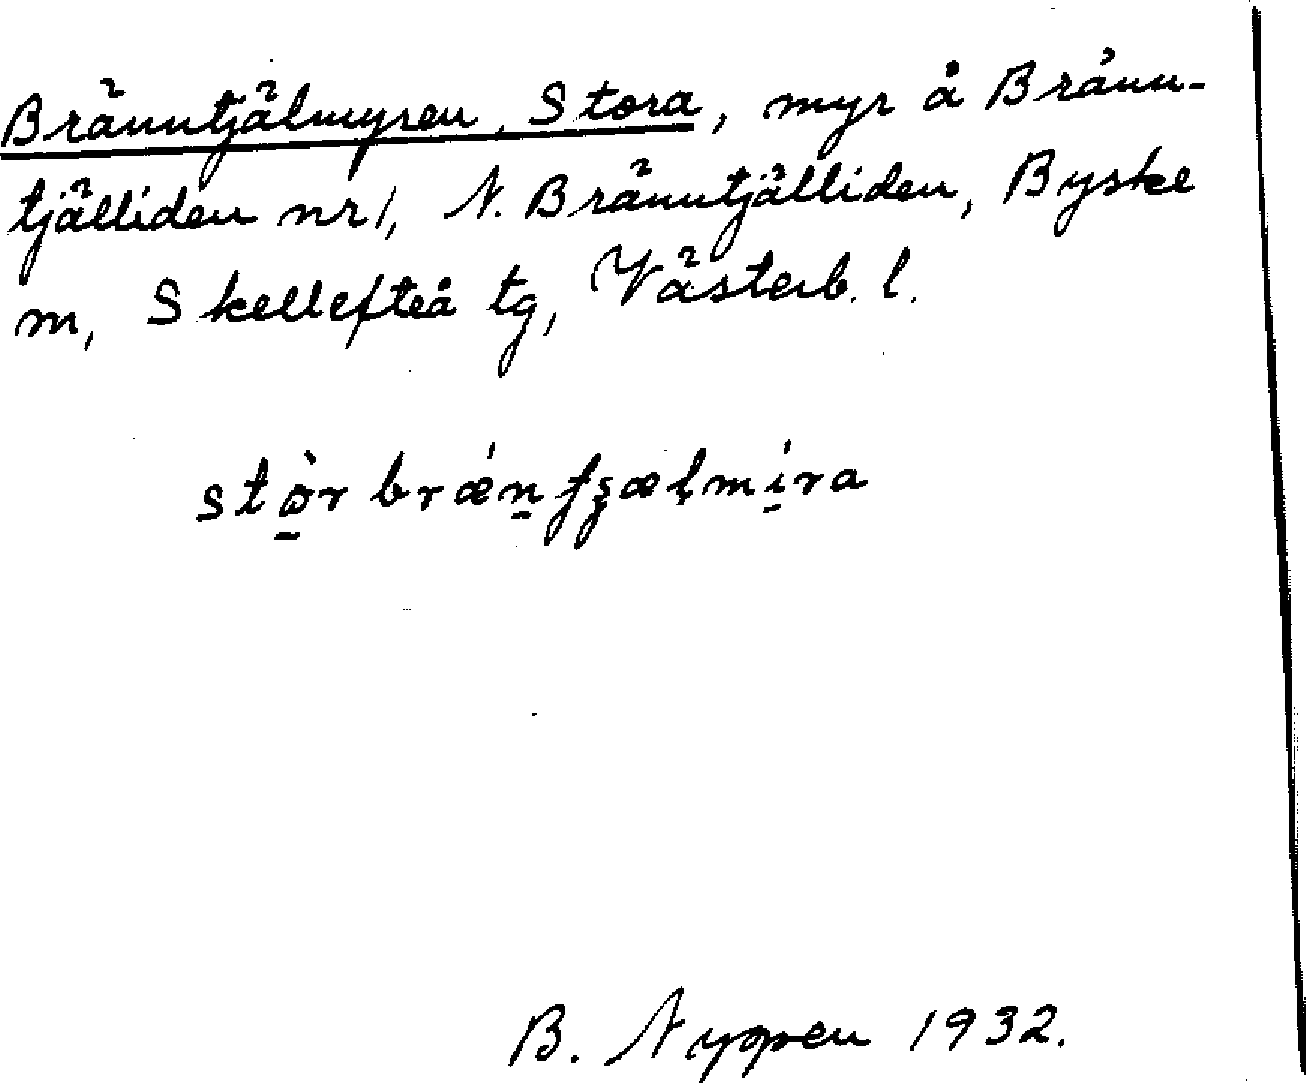 Bränntjälmyren, Stora, myr å Bränn-
tjälliden nr 1, N. Bränntjälliden, Byske
m, Skellefteå tg, Västerb. l.
B. Nygren 1932.